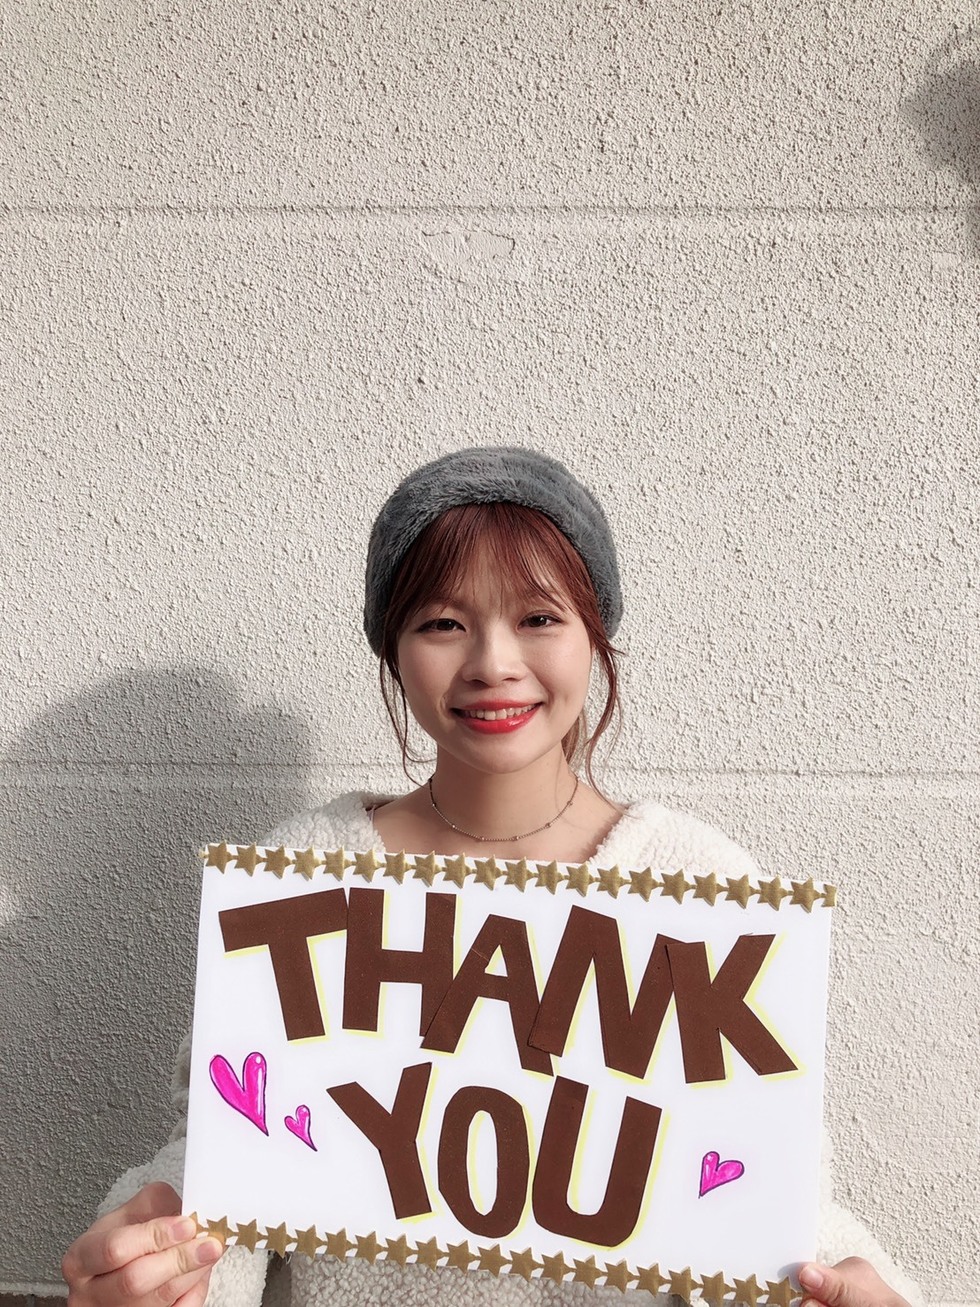 THANK
YOU